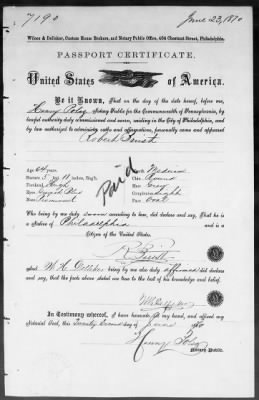 7190
June 23, 1870
Wilcox & DeHolker, Custom House Brokers, and Notary Public Office, 404 Chestnut Street, Philadelphia.
PASSPORT CERTIFICATE.
United States of America.
Be it Known, That on the day of the date hereof, before me,
Henry Notary Public for the Commonwealth of Pennsylvania, by
lawful authority duly commissioned and sworn, residing in the City of Philadelphia, and
by law authorized to administer oaths and affirmations, personally came and appeared
Robert Buist
Age 64 years. Medium
Stature 5 feet 11 inches, Eng'h Chin Round
Forehead High Hair Grey
Eyes Complexion
Nose Prominent Face Oval
Paid
Who being by me duly sworn according to law, did declare and say, That he is a
Native of Philadelphia and a
Citizen of the United States.
R Buist
W. H. being by me also duly affirmed did declare
and say, that the facts above stated are true to the best of his knowledge and belief.
In Testimony whereof, I have hereunto set my hand, and affixed my
Notarial Seal, this Twenty Second day of June 1870
Henry
Notary Public